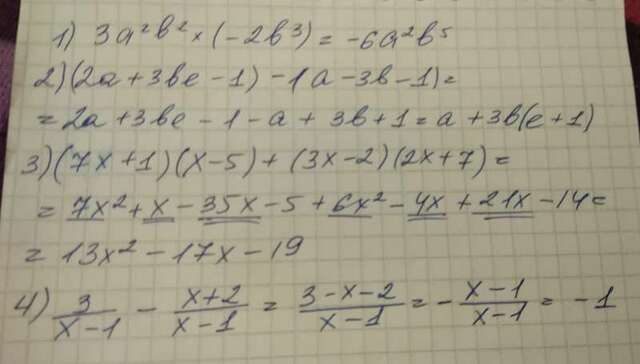 1) 3a²b² × (-2b³) = -6a²b⁵
2) (2a + 3be - 1) - (a - 3b - 1) =
= 2a + 3be - 1 - a + 3b + 1 = a + 3b(e + 1)
3) (7x + 1)(x - 5) + (3x - 2)(2x + 7) =
= 7x² + x - 35x - 5 + 6x² - 4x + 21x - 14 =
= 13x² - 17x - 19
4) 3/(x - 1) - (x + 2)/(x - 1) = (3 - x - 2)/(x - 1) = -(x - 1)/(x - 1) = -1